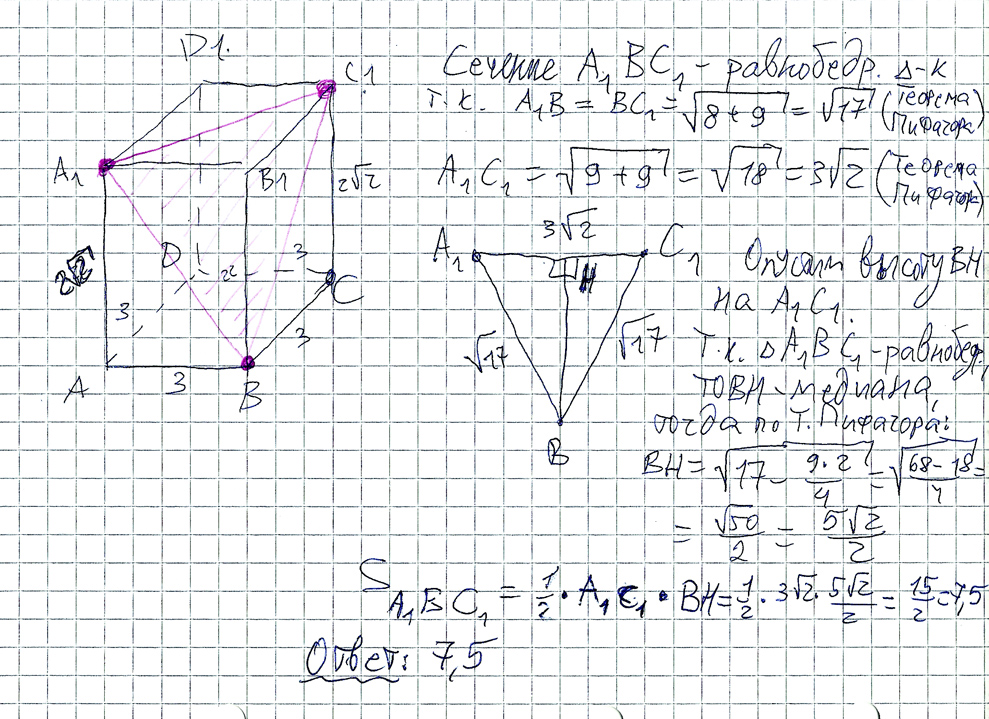 Сечение A₁BC₁ - равнобедр. Δ-к
т.к. A₁B = BC₁ = √(8+9) = √17 (Теорема Пифагора)
A₁C₁ = √(9+9) = √18 = 3√2 (Теорема Пифагор)
D1.
C1
A1
B1
2√2
D
3
2√2
C
3
3
A
3
B
3√2
A₁
C₁
H
√17
√17
B
Опустим высоту BH
на A₁C₁.
Т.к. Δ A₁BC₁ - равнобедр,
то BH - медиана,
тогда по Т. Пифагора:
BH = √(17 - 9·2/4) = √((68-18)/4) =
= √50/2 = 5√2/2
S A₁BC₁ = 1/2 · A₁C₁ · BH = 1/2 · 3√2 · 5√2/2 = 15/2 = 7,5
Ответ: 7,5